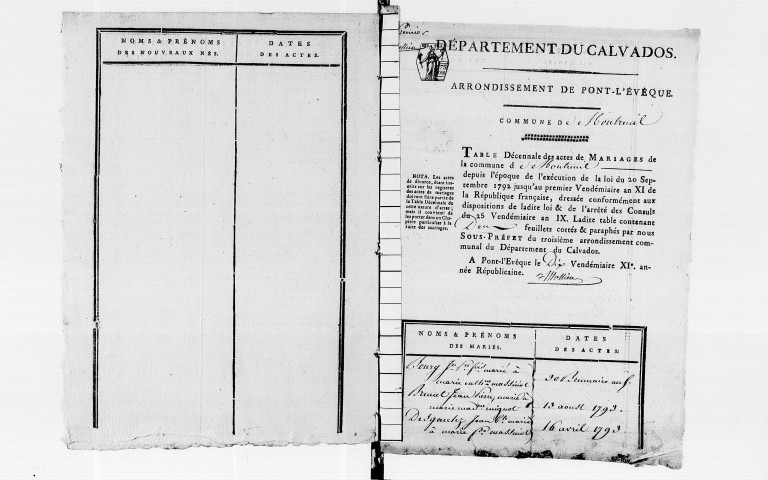 NOMS & PRÉNOMS
DES NOUVEAUX NÉS.
DATES
DES ACTES.
DÉPARTEMENT DU CALVADOS.
ARRONDISSEMENT DE PONT-L'ÉVÊQUE.
COMMUNE De Montreuil
TABLE Décennale des actes de MARIAGES de
la commune d e Monteuil
depuis l'époque de l'exécution de la loi du 20 Sep-
tembre 1792 jusqu'au premier Vendémiaire an XI de
la République française, dressée conformément aux
dispositions de ladite loi & de l'arrêté des Consuls
du 25 Vendémiaire an IX. Ladite table contenant
Deux feuillets cottés & paraphés par nous
SOUS-PRÉFET du troisième arrondissement com-
munal du Département du Calvados.
A Pont-l'Evêque le Dix Vendémiaire XIe. an-
née Républicaine.
Mollien
NOTA. Les actes
de divorce, étant ins-
crits sur les registres
des actes de mariages
doivent faire partie de
la Table Décennale de
cette nature d'actes;
mais il convient de
les porter dans un Cha-
pitre particulier à la
suite des mariages.
NOMS & PRÉNOMS
DES MARIÉS.
DATES
DES ACTES.
Bourg fr. marié à
marie cath.ne
30 Brumaire an
Brunet Jean Pierre, marié à
marie mad.ne
13 aoust 1793.
Jean marié
à marie
16 avril 1793